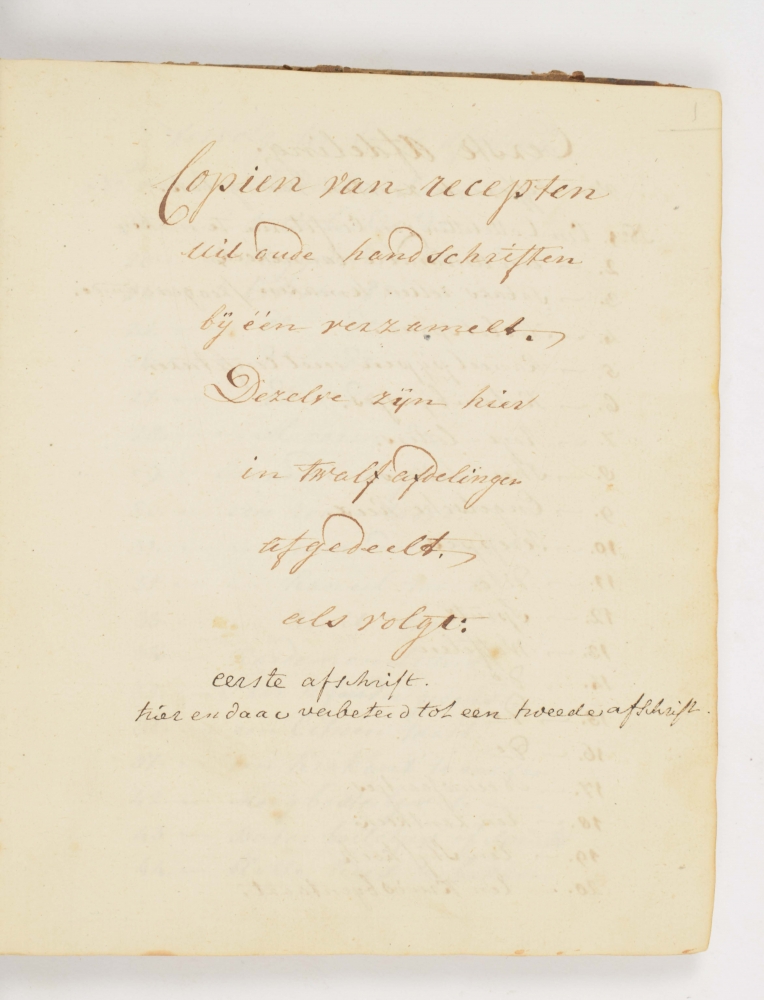 1
Copien van recepten
uit oude handschriften
bÿ één verzamelt.
Dezelve zÿn hier
in twalf afdelingen
afgedeelt.
als volgt:
eerste afschrift.
hier en daar verbeterd tot een tweede afschrift.